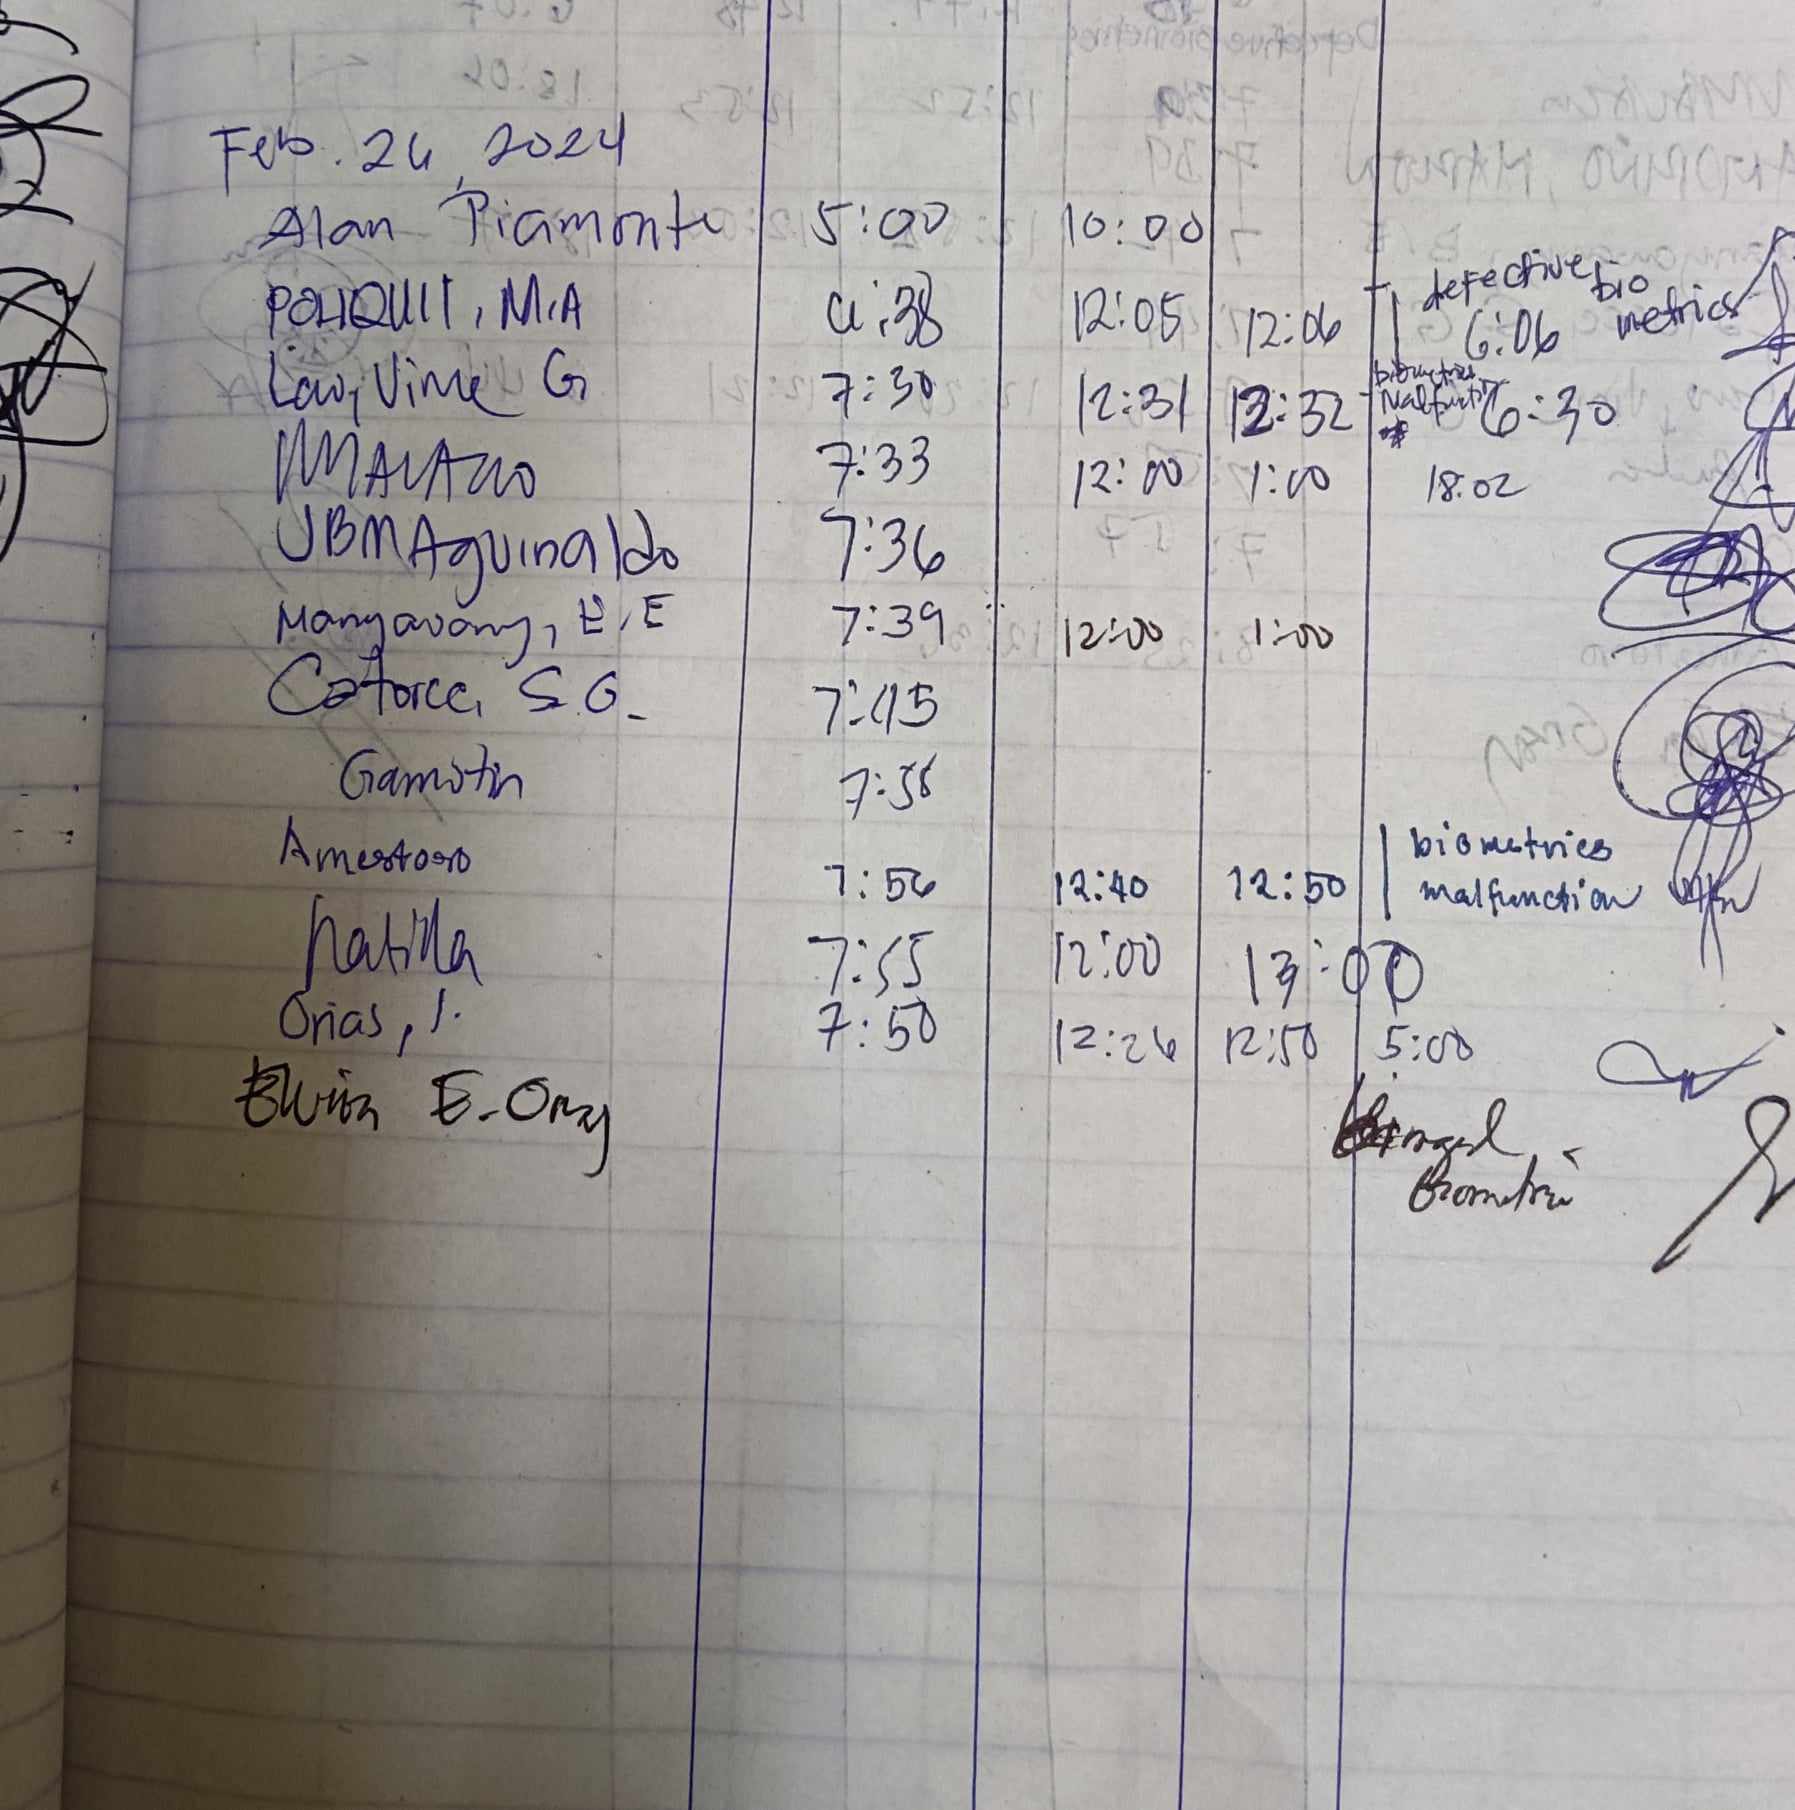 Feb. 26, 2024
Alan Piamonte 5:00 10:00
POLIQUIT, M.A 6:38 12:05 12:06 defective bio metrics 6:06
Lao, Vime G 7:30 12:31 12:32 biometrics Malfunction 6:30
7:33 12:00 1:00 18:02
JBM Aguinaldo 7:36
Mangavang, E.E 7:39 12:00 1:00
Catorce, S.G. 7:45
Gamotin 7:56
Amestoso 7:56 12:40 12:50 biometrics malfunction
7:55 12:00 13:00
Orias, J. 7:50 12:26 12:50 5:00
Elvira E. Ong